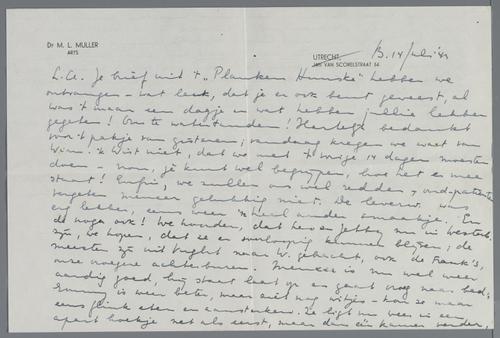 Dr M. L. MULLER
ARTS
UTRECHT
JAN VAN SCORELSTRAAT 64
B. 14 Juli '43
L.A. Je brief uit 't „Planken Huuske" hebben we
ontvangen – wat leuk, dat je er ook bent geweest, al
was 't maar een dagje en wat hebben jullie lekker
gegeten! Om te watertanden! Hartelijk bedankt
voor 't pakje van gisteren; vandaag kregen we wat van
Wim. Ik wist niet, dat we met 't vorige 14 dagen moesten
doen – nou, je kunt wel begrijpen, hoe het er mee
staat! Enfin, we zullen ons wel redden, oud-patienten
vergeten meneer gelukkig niet. De leverw. was
erg lekker, eens weer 'n heel ander smaakje. En
de ook! We hoorden, dat en Jetty nu in Westerb.
zijn, we hopen, dat ze er voorloopig kunnen blijven; de
meesten zijn uit Vught naar W. gebracht, ook de Frank's,
onze vroegere achterburen. is nu wel weer
aardig goed, hij staat laat op en gaat vroeg naar bed;
is weer beter, maar ziet nog witjes – kon ze maar
eens flink eten en aansterken. Ze ligt nu weer in een
apart hoekje net als eerst, maar dan één kamer verder,